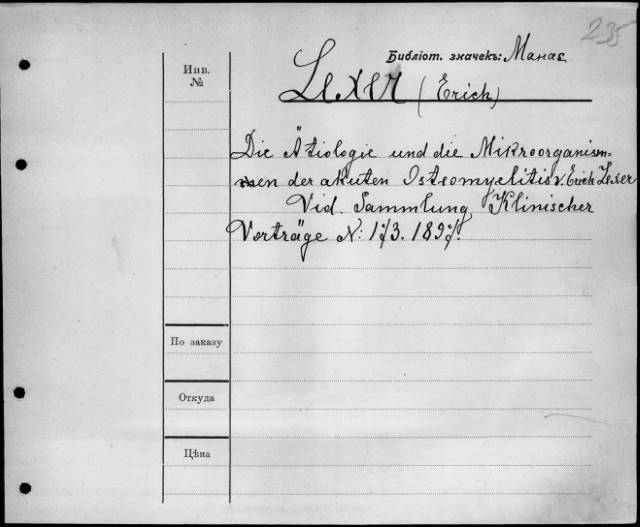 235
Библіот. значекъ: Манас
Инв.
№
Lexer (Erich)
Die Ätiologie und die Mikroorganism-
en der akuten Osteomyelitis v. Erich Lexer
Vid. Sammlung Klinischer
Vorträge N: 173. 1897.
По заказу
Откуда
Цѣна